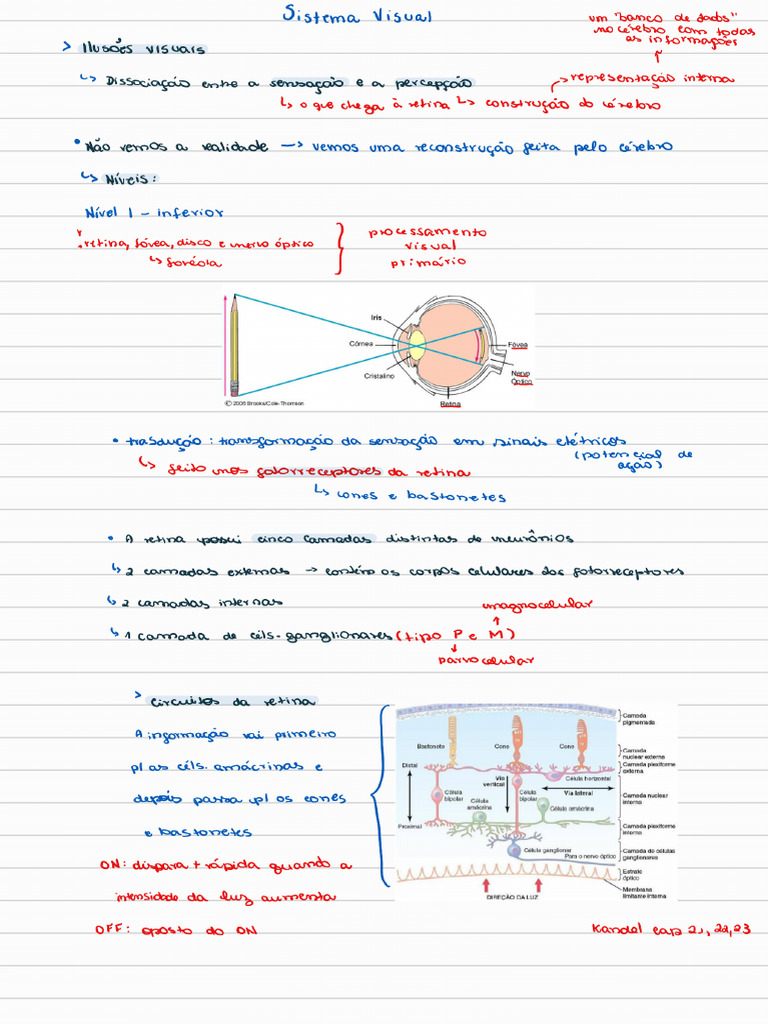 Sistema Visual
um "banco de dados"
no cérebro com todas
as informações
> Ilusões visuais
representação interna
↳ Dissociação entre a sensação e a percepção
↳ o que chega à retina ↳ construção do cérebro
• Não vemos a realidade → vemos uma reconstrução feita pelo cérebro
↳ Níveis:
Nível 1 - inferior
retina, fóvea, disco e nervo óptico
↳ foveóla
processamento
visual
primário
Iris
Córnea
Fóvea
Cristalino
Nervo
Óptico
Retina
© 2006 Brooks/Cole-Thomson
• trasdução: transformação da sensação em sinais elétricos
(potencial de
ação)
↳ feito nos fotorreceptores da retina
↳ cones e bastonetes
• A retina possui cinco camadas distintas de neurônios
↳ 2 camadas externas → contém os corpos celulares dos fotorreceptores
↳ 2 camadas internas
magnocelular
↳ 1 camada de céls. ganglionares (tipo P e M)
parvocelular
> Circuitos da retina
A informação vai primeiro
p/ as céls. amácrinas e
depois passa p/ os cones
e bastonetes
ON: dispara + rápida quando a
intensidade da luz aumenta
OFF: oposto do ON
Camada
pigmentada
Bastonete
Cone
Cone
Camada
nuclear externa
Distal
Camada plexiforme
externa
Via
vertical
Célula horizontal
Célula
bipolar
Célula
bipolar
Via lateral
Camada nuclear
interna
Célula
amácrina
Célula amácrina
Proximal
Camada plexiforme
interna
Célula ganglionar
Para o nervo óptico
Camada de células
ganglionares
Estrato
óptico
DIREÇÃO DA LUZ
Membrana
limitante interna
Kandel cap 21, 22, 23